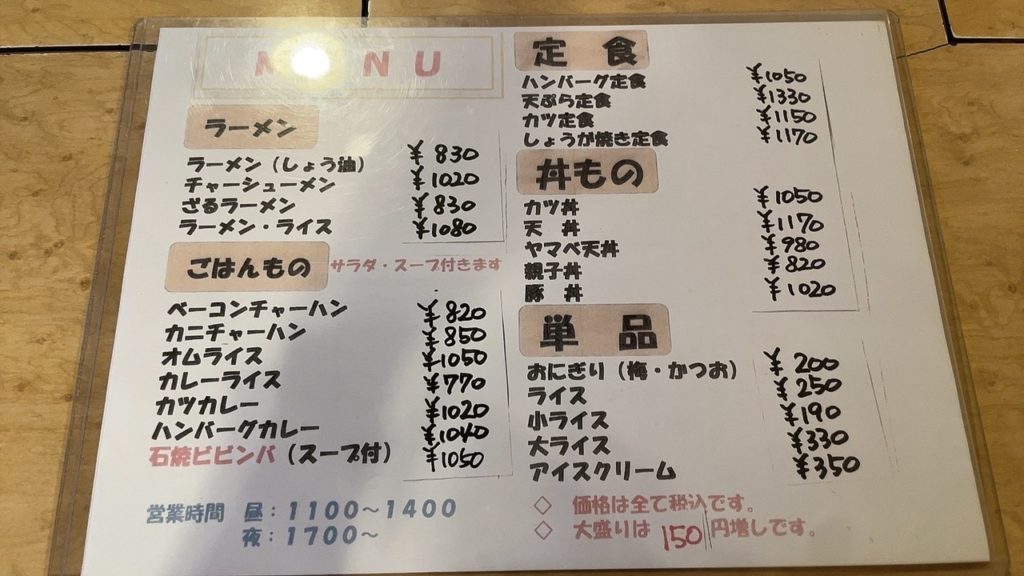 MENU
ラーメン
ラーメン（しょう油） ¥830
チャーシューメン ¥1020
ざるラーメン ¥830
ラーメン・ライス ¥1080
ごはんもの サラダ・スープ付きます
ベーコンチャーハン ¥820
カニチャーハン ¥850
オムライス ¥1050
カレーライス ¥770
カツカレー ¥1020
ハンバーグカレー ¥1040
石焼ビビンバ（スープ付） ¥1050
営業時間 昼：１１００～１４００
夜：１７００～
定 食
ハンバーグ定食 ¥1050
天ぷら定食 ¥1330
カツ定食 ¥1150
しょうが焼き定食 ¥1170
丼もの
カツ丼 ¥1050
天 丼 ¥1170
ヤマベ天丼 ¥980
親子丼 ¥820
豚 丼 ¥1020
単 品
おにぎり（梅・かつお） ¥200
ライス ¥250
小ライス ¥190
大ライス ¥330
アイスクリーム ¥350
◇ 価格は全て税込です。
◇ 大盛りは 150 円増しです。